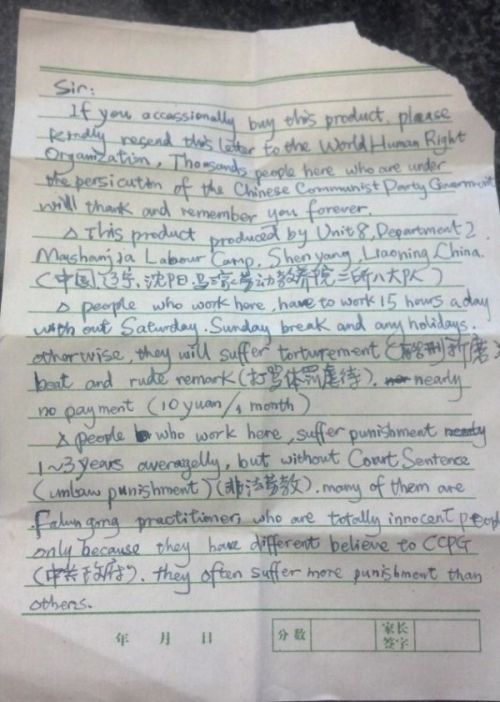 Sir:
If you accassionally buy this product, please
kindly resend this letter to the World Human Right
Organization, Thousands people here who are under
the persicuttn of the Chinese Communist Party Goverment
will thank and remember you forever.
△ This product produced by Unit 8, Department 2
Mashanjia Labour Camp, Shenyang, Liaoning, China.
(中国, 辽宁, 沈阳, 马三家劳动教养院二所八大队)
△ people who work here, have to work 15 hours a day
with out Saturday, Sunday break and any holidays.
otherwise, they will suffer torturement
beat and rude remark (打骂体罚虐待). nearly
no payment (10 yuan/1 month)
△ people who work here, suffer punishment nearly
1~3 years averagelly, but without Court Sentence
(unlaw punishment) (非法劳教). many of them are
Falun gong practitioner, who are totally innocent people
only because they have different believe to CCPG
(中共政府). they often suffer more punishment than
others.
年 月 日 分数 家长签字